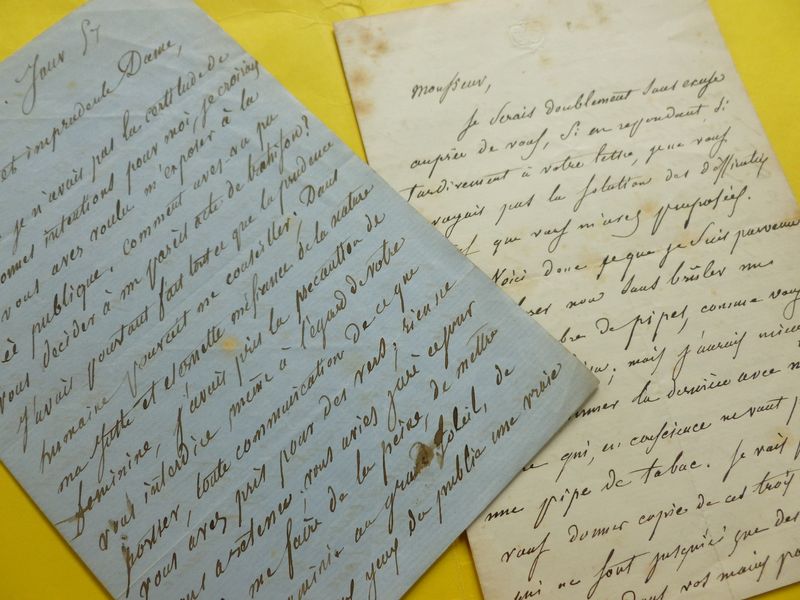 et imprudente Dame,
je n'avais pas la certitude de
bonnes intentions pour moi, je croirais
vous avez voulu m'exposer à la
publique. Comment avez-vous pu
vous décider à un pareil acte de trahison?
J'avais pourtant fait tout ce que la prudence
humaine pouvait me conseiller. Dans
ma juste et éternelle méfiance de la nature
féminine, j'avais pris la précaution de
vous interdire même à l'égard de votre
portier, toute communication de ce que
vous avez pris pour des vers; rien ne
a retenue; vous aviez juré ce jour
me faire de la peine, de mettre
au grand soleil, de
yeux du public une vraie
Monsieur,
Je serais doublement sans excuse
auprès de vous, si en répondant si
tardivement à votre lettre, je ne vous
pas la solution des difficultés
que vous m'avez proposées.
Voici donc ce que je suis parvenu
non sans brûler une
de pipes, comme vous
mais j'aurais mieux
la dernière avec
qui, en conscience ne vaut
une pipe de tabac. Je vais
vous donner copie de ces trois
qui ne sont jusqu'ici que des
dans vos mains